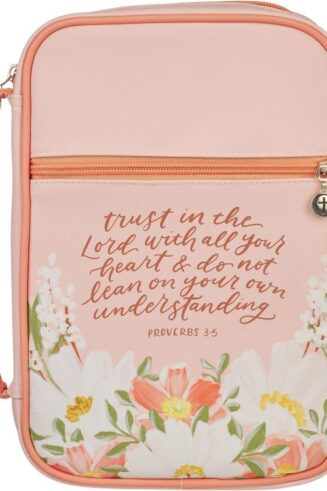 trust in the
Lord with all your
heart & do not
lean on your own
understanding
PROVERBS 3:5